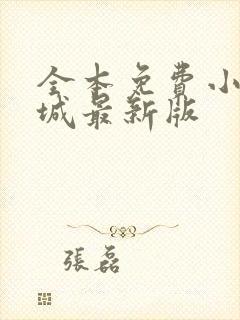 全本免費小
城最新版
張磊